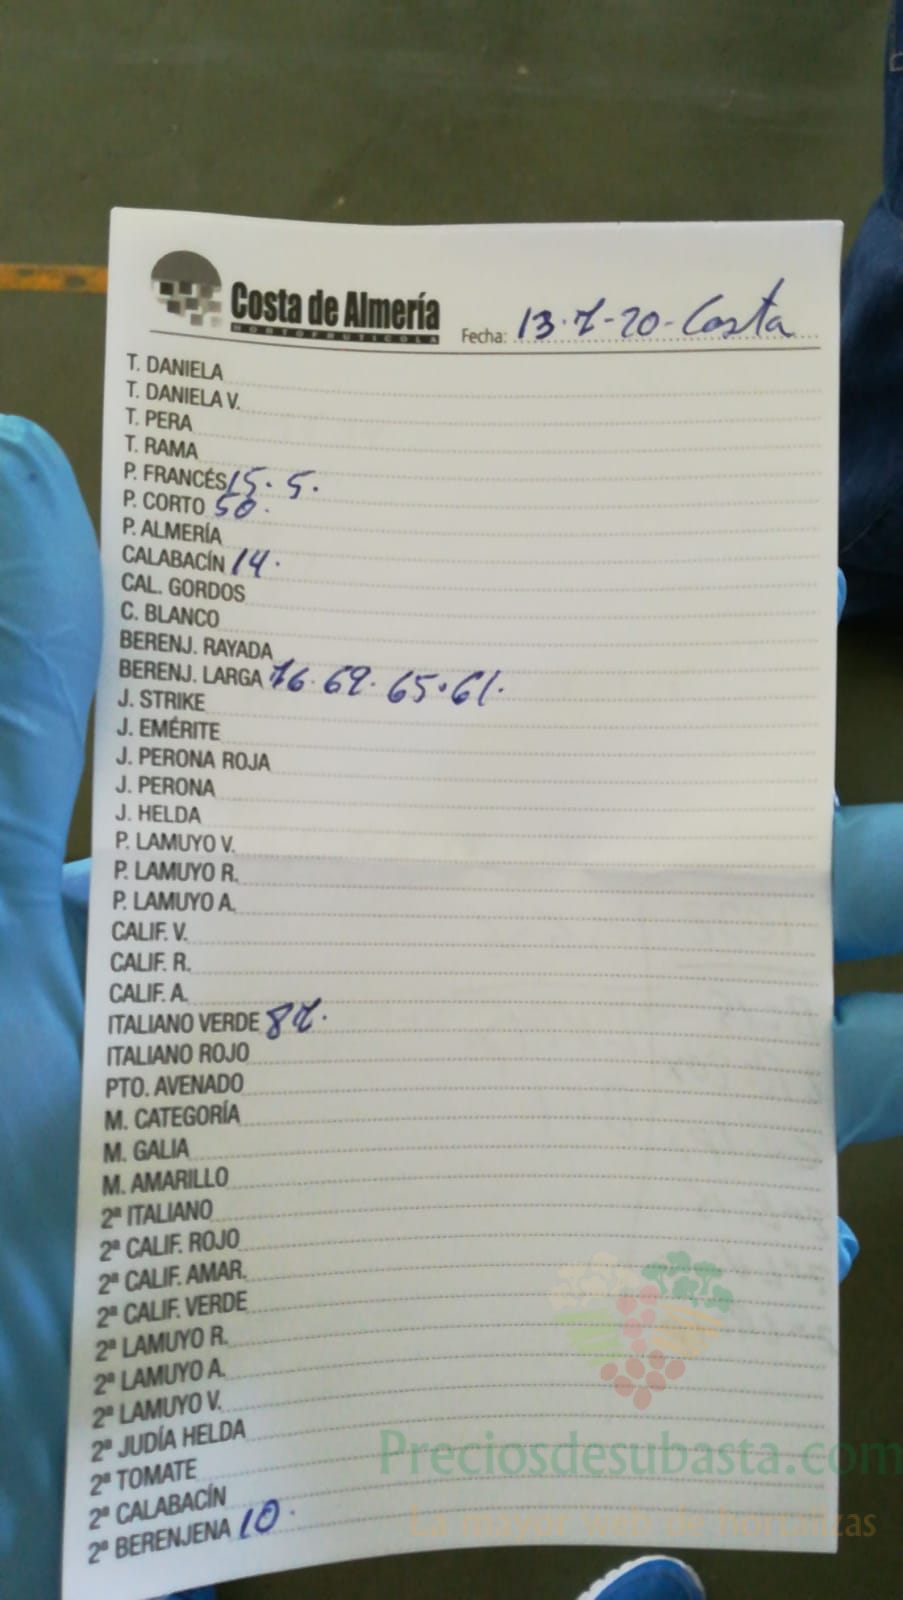 Costa de Almería
HORTOFRUTICOLA
Fecha: 13-7-20-Costa
T. DANIELA
T. DANIELA V.
T. PERA
T. RAMA
P. FRANCÉS 15. 5.
P. CORTO 50.
P. ALMERÍA
CALABACÍN 14.
CAL. GORDOS
C. BLANCO
BERENJ. RAYADA
BERENJ. LARGA 76. 69. 65. 61.
J. STRIKE
J. EMÉRITE
J. PERONA ROJA
J. PERONA
J. HELDA
P. LAMUYO V.
P. LAMUYO R.
P. LAMUYO A.
CALIF. V.
CALIF. R.
CALIF. A.
ITALIANO VERDE 87.
ITALIANO ROJO
PTO. AVENADO
M. CATEGORÍA
M. GALIA
M. AMARILLO
2ª ITALIANO
2ª CALIF. ROJO
2ª CALIF. AMAR.
2ª CALIF. VERDE
2ª LAMUYO R.
2ª LAMUYO A.
2ª LAMUYO V.
2ª JUDÍA HELDA
2ª TOMATE
2ª CALABACÍN
2ª BERENJENA 10.
Preciosdesubasta.com
La mayor web de hortalizas